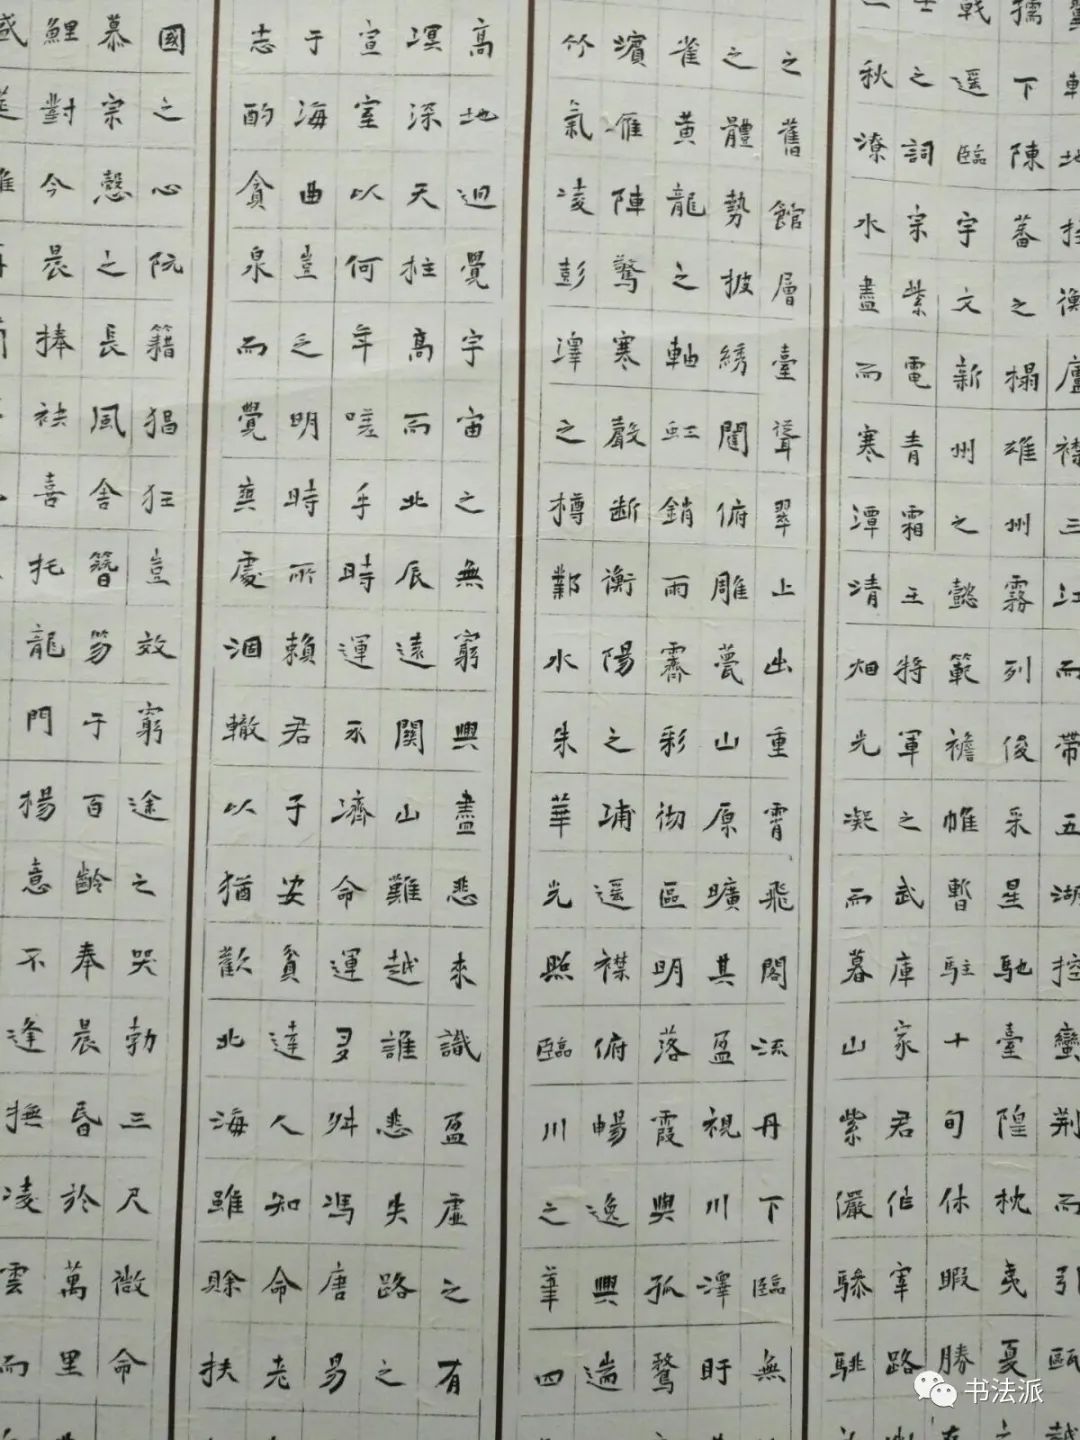 翼軫地接衡廬襟三江而帶五湖控蠻荆而引甌越
孺下陳蕃之榻雄州霧列俊采星馳臺隍枕夷夏之
戟遥臨宇文新州之懿範襜帷暫駐十旬休暇勝友
士之詞宗紫電青霜王將軍之武庫家君作宰路出
秋潦水盡而寒潭清烟光凝而暮山紫儼驂騑
之舊館層臺聳翠上出重霄飛閣流丹下臨無
之體勢披綉闥俯雕甍山原曠其盈視川澤盱
雀黄龍之軸虹銷雨霽彩彻區明落霞與孤鶩
濱雁陣驚寒聲斷衡陽之浦遥襟俯暢逸興遄
竹氣凌彭澤之樽鄴水朱華光照臨川之筆四
高地迥覺宇宙之無窮興盡悲來識盈虚之有
溟深天柱高而北辰遠關山難越誰悲失路之
宣室以何年嗟乎時運不濟命運多舛馮唐易
于海曲豈乏明時所賴君子安貧達人知命老
志酌貪泉而覺爽處涸轍以猶歡北海雖賒扶
國之心阮籍猖狂豈效窮途之哭勃三尺微命
慕宗慤之長風舍簪笏于百齡奉晨昏於萬里
鯉對今晨捧袂喜托龍門楊意不逢撫凌雲而
书法派